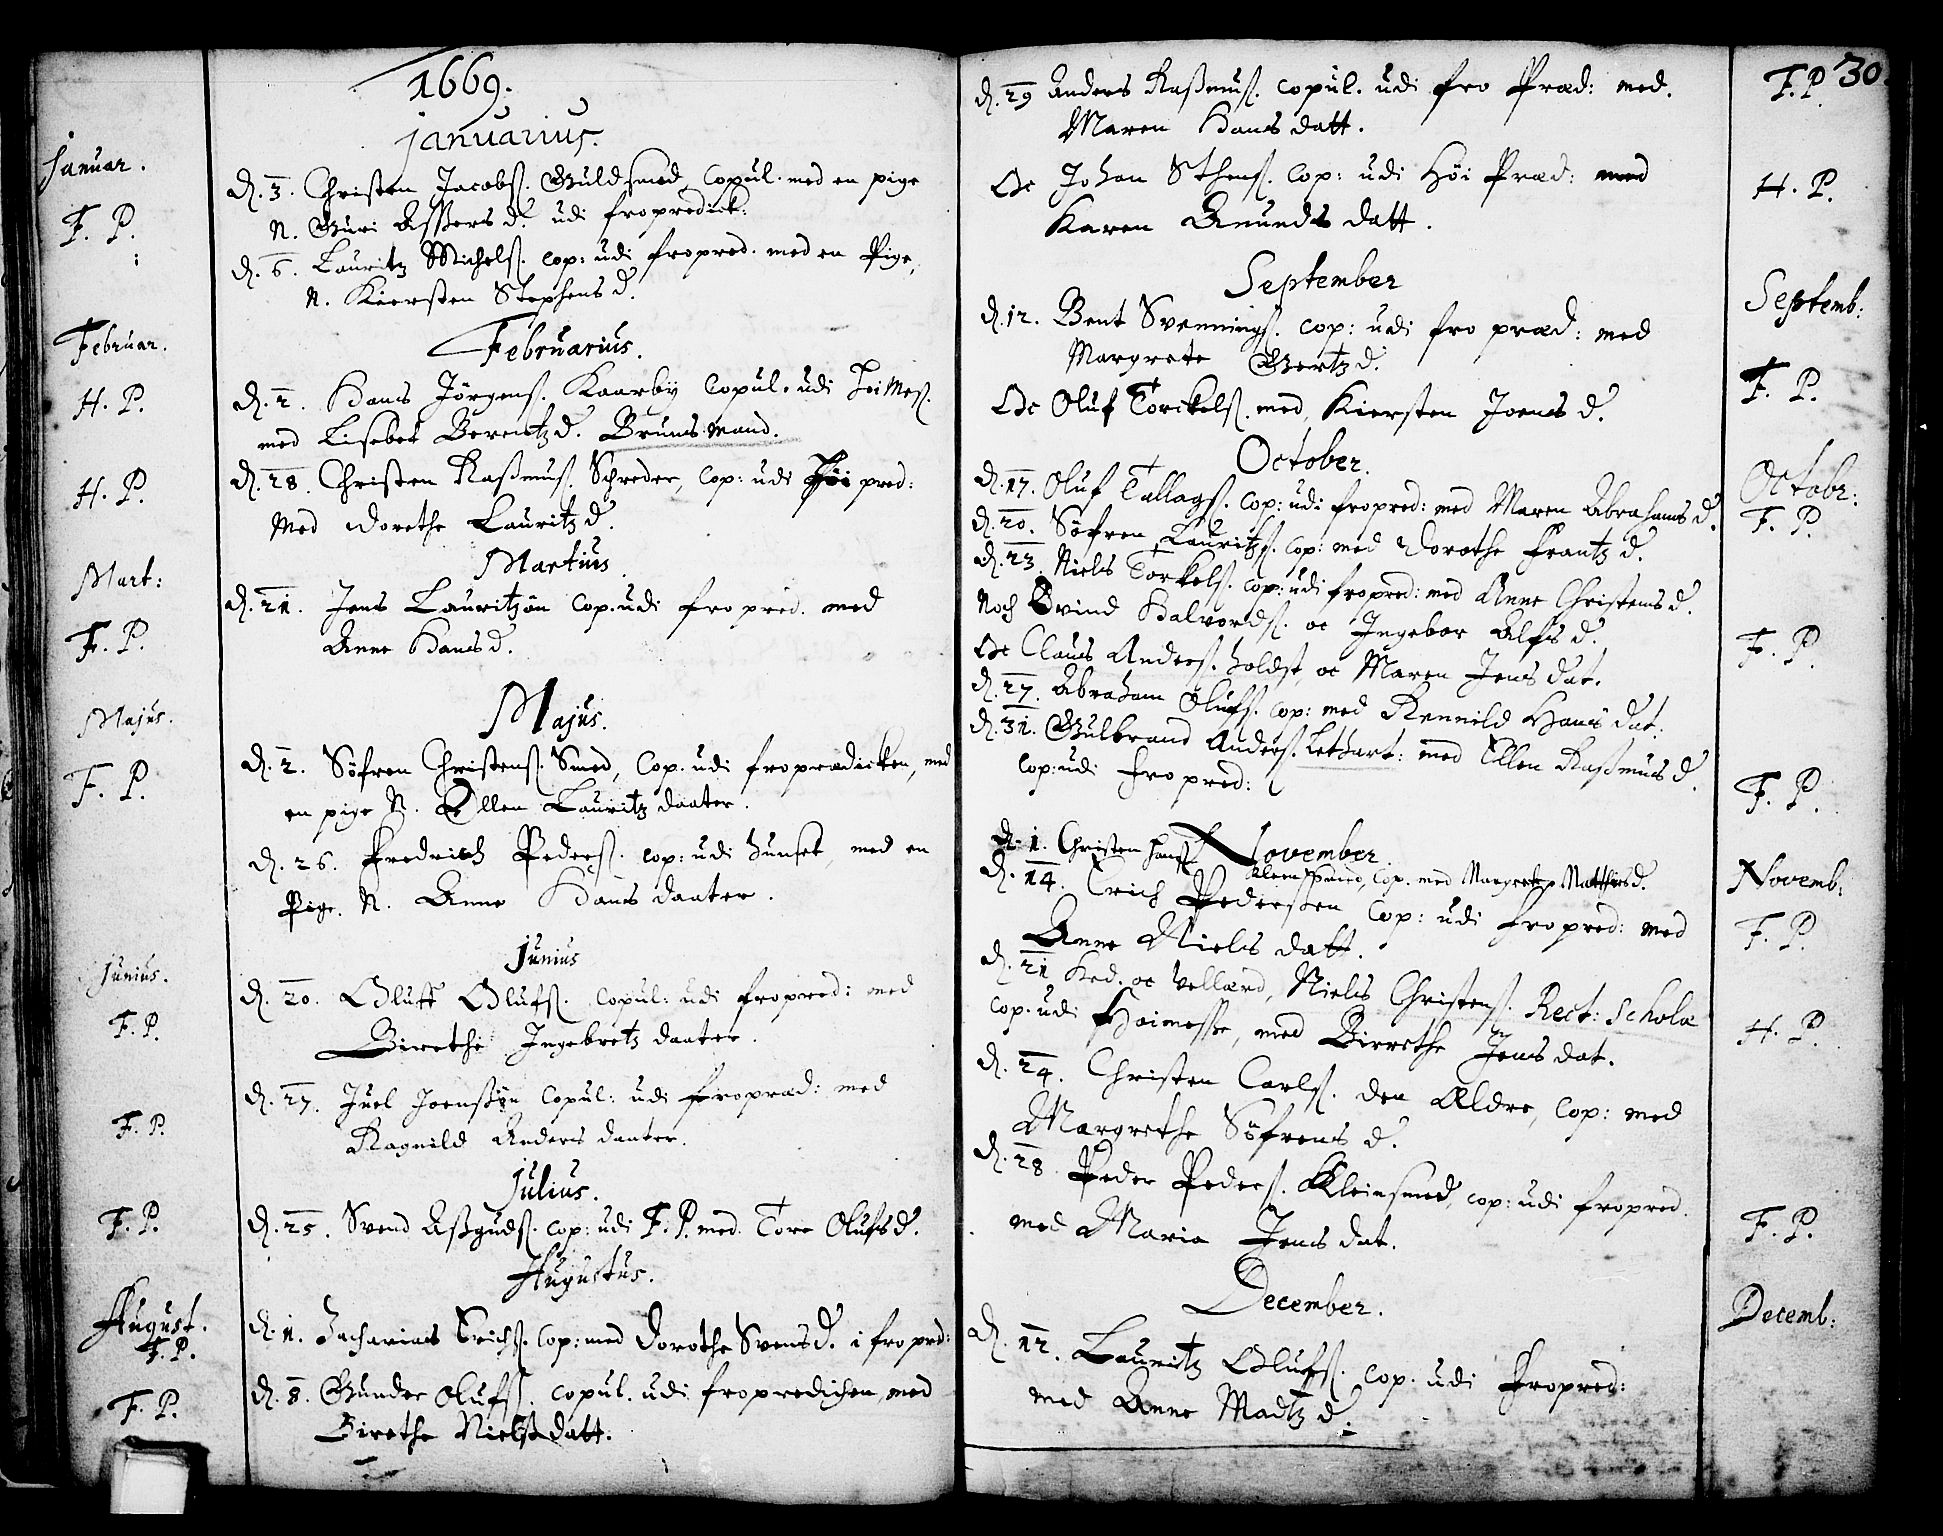 1669.
Januarius.
Januar.
d. 3. Christen Jacobs. Guldsmed, Copul. med en pige
N. Guri Assers d. udi fropredick:
F. P.
d. 6. Lauritz Michels. cop: udi fropred. med en Pige,
N. Kiersten Stephens d.
Februarius.
Februar.
d. 2. Hans Jörgens. Kaarbÿ Copul. udi HöiMes.
H. P.
med Lisebet Berentz d. Bruns: mand.
d. 28. Christen Rasmus. Schreder, Cop: udi Höi pred:
H. P.
Med Dorethe Lauritz d.
Martius
Mart:
d. 21. Jens Lauritzøn Cop. udi fro pred. med
F. P.
Anne Hans d.
Majus.
Majus.
d. 2. Söfren Christens. Smed, Cop. udi froprædicken, med
F. P.
en pige N. Ellen Lauritz daater.
d. 26. Fredrich Peders. cop: udi huuset, med en
Pige. N. Anne Hans daater.
Junius
Junius.
d. 20. Oluff Olufs. Copul: udi fropred: med
F. P.
Birethe Ingebretz daater.
d. 27. Juel Joenssøn Copul: udi fropræd: med
F. P.
Ragnild Anders daater.
Julius.
d. 25. Svend Assguds. cop: udi F. P. med. Tore Olufs d.
F. P.
Augustus.
August.
d. 1. Zacharias Erichs. Cop: med Dorothe Svens d. i fro pred:
F. P.
d. 8. Gunder Olufs. copul. udi fropredichen, med
F. P.
Birethe Niels datt.
30.
d. 29 Anders Rasmus. copul. udi fro Præd: med.
F. P.
Maren Hans datt.
Oc Johan Sthens. Cop: udi Höi Præd: med
H. P.
Karen Anunds datt.
September
Septemb:
d. 12. Bent Svennings. cop: udi fro præd: med
Margrete Gertz d.
F. P.
Oc Oluf Torckels. med, Kiersten Joens d.
October.
Octobr:
d. 17. Oluf Tallags. Cop: udi fropred: med Maren Abrahams d.
F. P.
d. 20. Söfren Lauritzs. Cop: med Dorothe Frantz d.
d. 23. Niels Torkels. cop: udi fropred: med Anne Christens d.
Noch Övind Halvords. oc Ingebor Alfs d.
F. P.
Oc Claus Anders. holdst, oc Maren Jens dat.
d. 27. Abraham Olufs. cop: med Rennild Hans dat.
d. 31. Gulbrand Anders. Lethart: med Ellen Rasmus d.
F. P.
Cop: udi fro pred:
November.
Novemb:
d. 1. Christen Hans. Cop. med Margrete Matthis d.
d. 14. Erich Pederssen Cop: udi fropred: med
F. P.
Anne Niels datt.
d. 21 Hed. oc Vellærd, Niels Christens. Rect: Scholæ
Cop. udi Höimesse, med Birrethe Jens dat.
H. P.
d. 24. Christen Carls. den Ældre, Cop: med
Margrethe Söfrens d.
d. 28. Peder Peders. Kleinsmed, cop: udi fropred.
F. P.
med Maria Jens dat.
December.
Decemb:
d. 12. Lauritz Olufs. Cop. udi Fropred:
med Anne Madtz d.